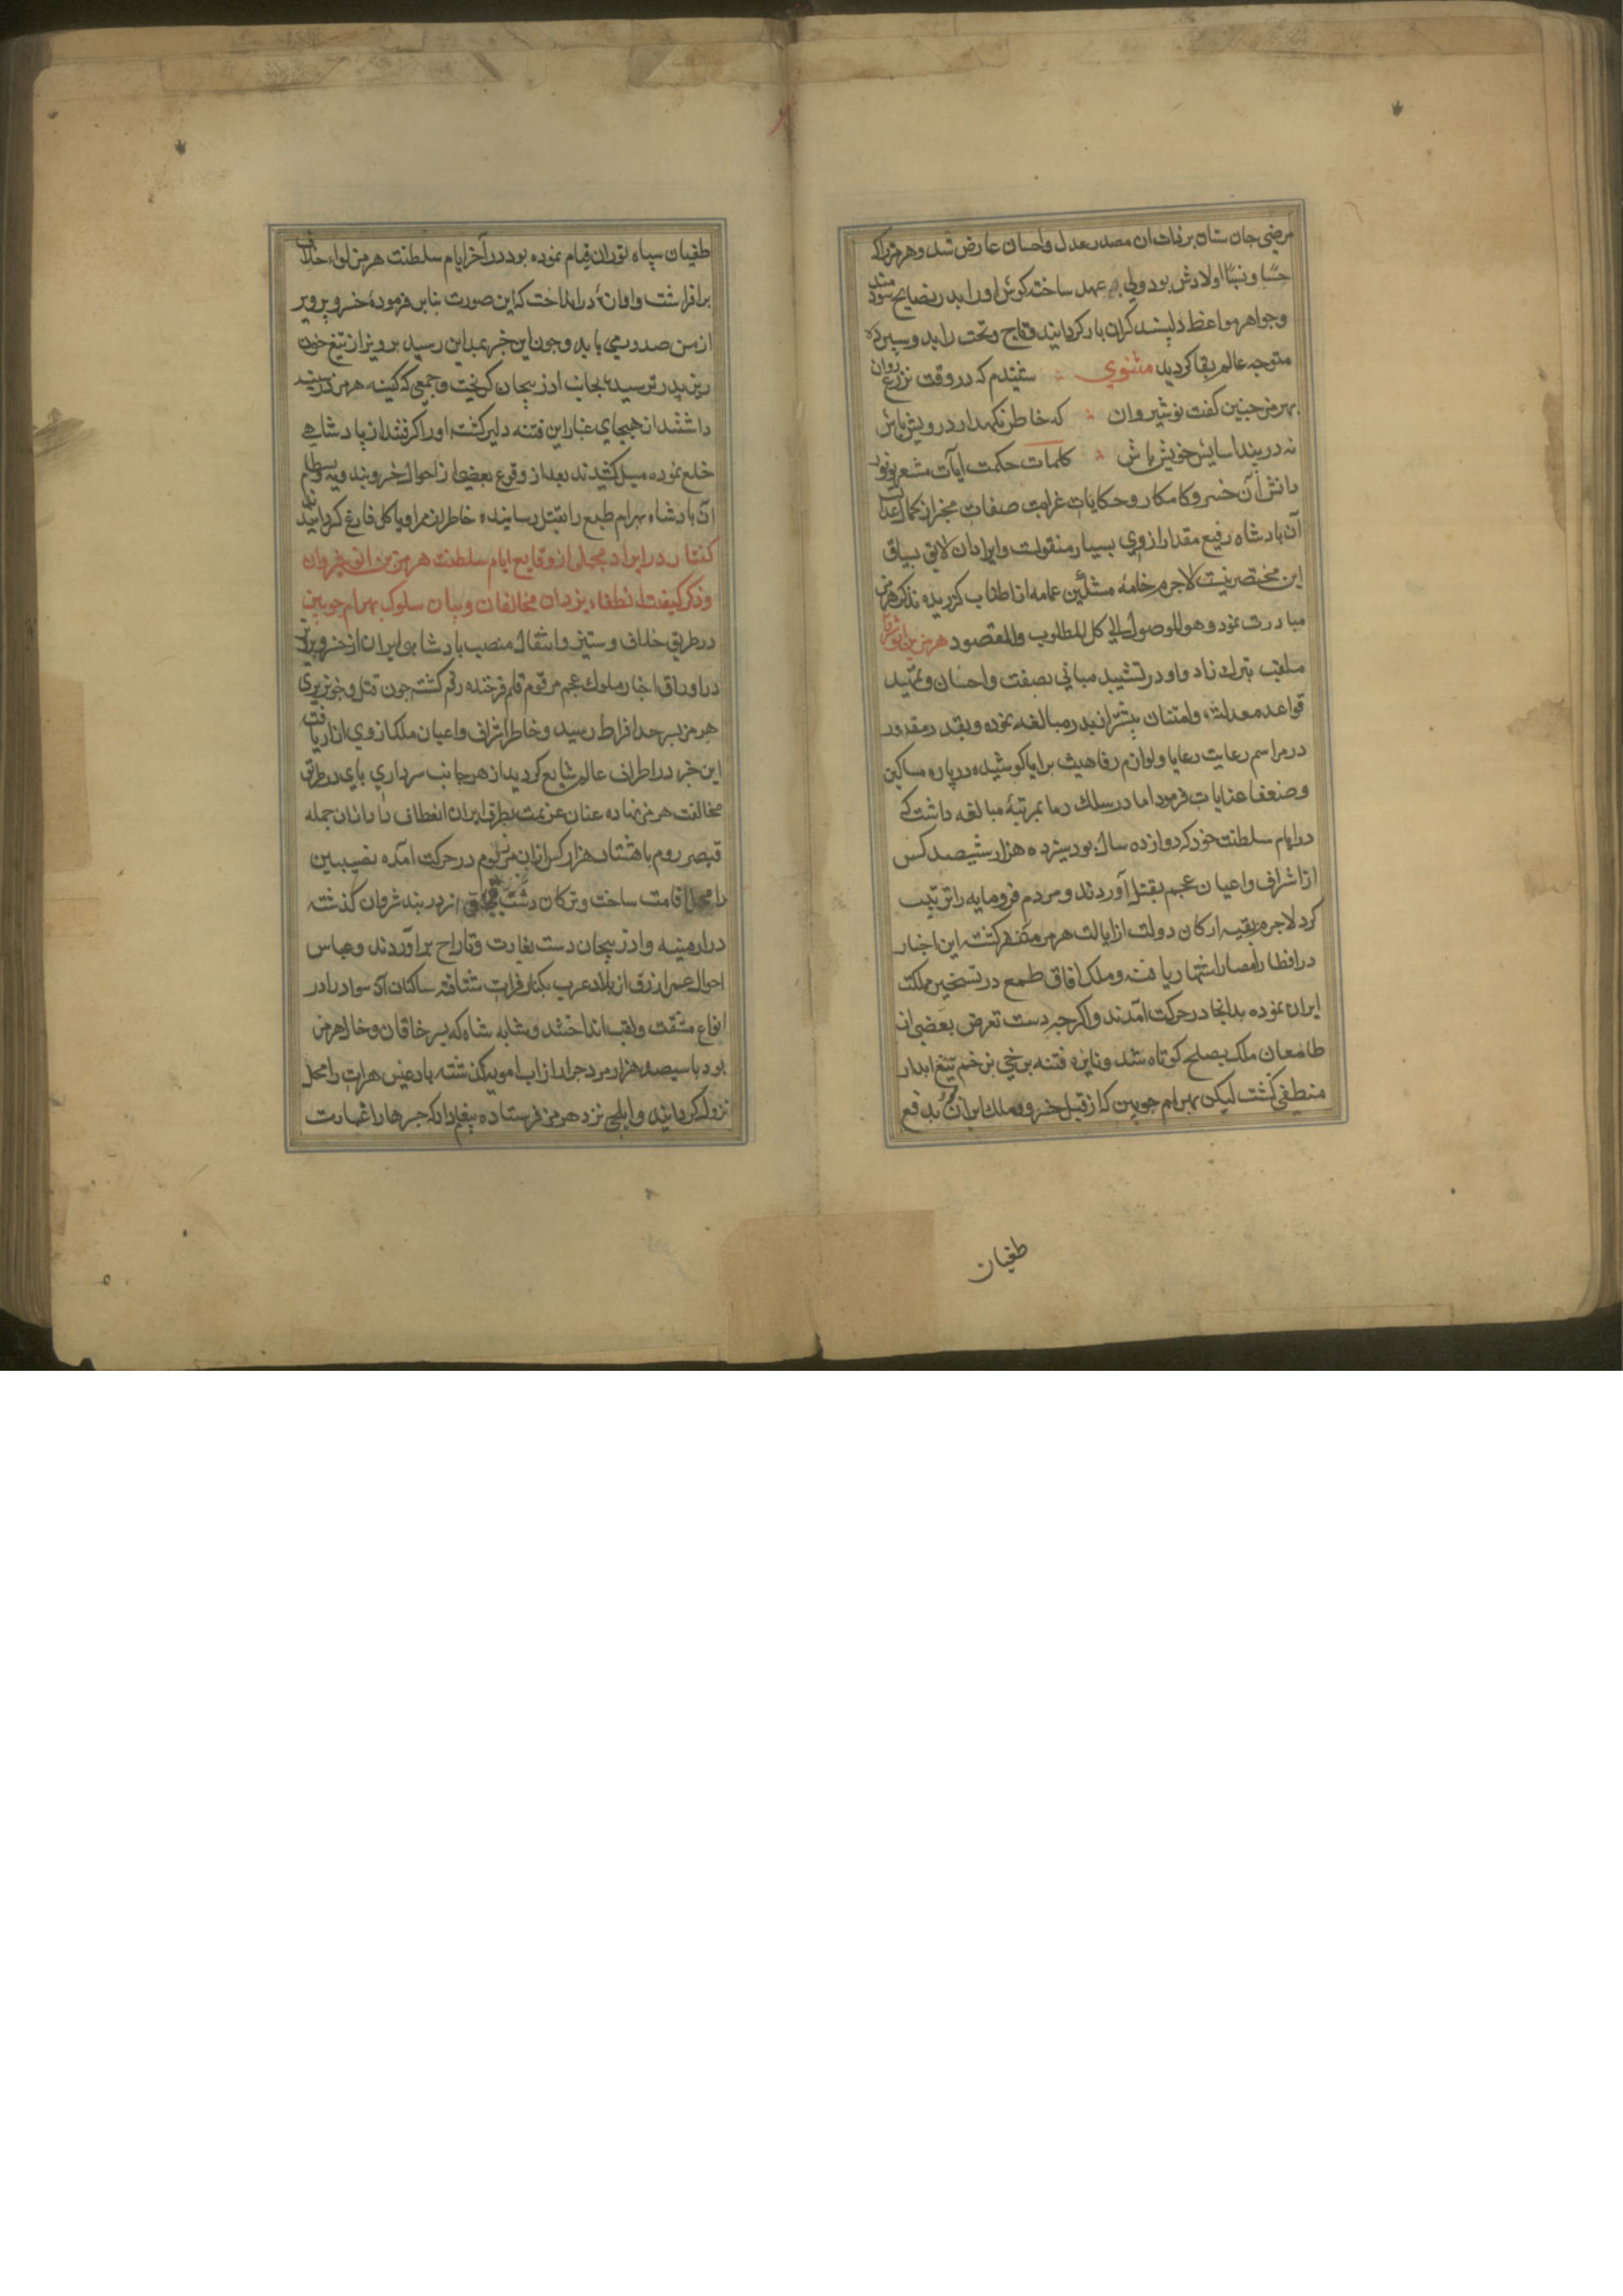 مرضی جان ستان بر ذات ان مصدر عدل و احسان عارض شد و هرمز را که
حسبا و نسبا اولادش بود ولی عهد ساخته کوش او را بدر نصایح سودمند
و جواهر مواعظ دلپسند کران بار کردانید و تاج و تخت را بدو سپرده
متوجه عالم بقا کردید مثنوی شنیدم که در وقت نزع روان
بهرمز جنین کفت نوشیروان که خاطر نکهدار درویش باش
نه در بند اسایش خویش باش کلمات حکمت ایات مشعر بوفور
دانش آن خسرو کامکار و حکایات غرابت صفات مخبر از کمال عدالت
آن بادشاه رفیع مقدار از وی بسیار منقولست و ایراد ان لایق بسیاق
این مختصر نیست لاجرم خامه مشکین عمامه از اطناب کزیده بذکر هرمز
مبادرت نمود و هو الموصول الی کل المطلوب والمقصود هرمز بن انوشروان
ملقب بترک زاد و او در تشیید مبانی نصفت و احسان و تمهید
قواعد معدلت و امتنان بیشتر از پدر مبالغه نموده و بقدر مقدور
در مراسم رعایت رعایا و لوازم رفاهیت برایا کوشیده در باره مساکین
و ضعفا عنایات فرمود اما در سفک دما بمرتبهٔ مبالغه داشت که
در ایام سلطنت خود که دوازده سال بود سیزده هزار و ششصد کس
از اشراف و اعیان عجم بقتل آوردند و مردم فرومایه را تربیت
کرد لاجرم بقیه ارکان دولت از ایالت هرمز متنفر کشته این اخبار
در اقطار امصار اشتهار یافت و ملوک افاق طمع در تسخیر مملکت
ایران نموده بدانجا در حرکت آمدند و اکرجه دست تعرض بعضی از
طامعان ملک بصلح کوتاه شد و نایره فتنه برخی بزخم تیغ ابدار
منطفی کشت لیکن بهرام جوبین که از قبل خسرو ملک ایران بدفع
طغیان
طغیان سپاه توران قیام نموده بود در آخر ایام سلطنت هرمز لواء خلاف
برافراشت و اوازه در انداخت که این صورت بنابر فرمودهٔ خسرو پرویز
از من صدور می یابد و جون این خبر بمداین رسید پرویز از تیغ خون
ریز پدر ترسیده بجانب اذربیجان کریخت و جمعی که کینه هرمز در سینه
داشتند از هیجای غبار این فتنه دلیر کشته او را کرفتند از پادشاهی
خلع نموده میل کشیدند بعد از وقوع بعضی از احوال خسرو بندویه و بسطام
آن بادشاه بهرام طبع را بقتل رسانیده خاطر از مر او بالکل فارغ کردانیدند
کفتار در ایراد مجملی از وقایع ایام سلطنت هرمز بن انوشیروان
و ذکر کیفیت انطفاء نیران مخالفان و بیان سلوک بهرام جوبین
در طریق خلاف و ستیز و انتقال منصب بادشاهی ایران از خسرو پرویز
در اوراق اخبار ملوک عجم مرقوم قلم فرخنده رقم کشته جون قتل و خونریزی
هرمز بسرحد افراط رسید و خاطر اشراف و اعیان ملک از وی ازار یافت
این خبر در اطراف عالم شایع کردید از هر جانب سرداری بای در طریق
مخالفت هرمز نهاده عنان عزیمت بطرف ایران انعطاف داد ازان جمله
قیصر روم با هشتاد هزار کس ازان مرز و بوم در حرکت امده نصیبین
را محل اقامت ساخت و ترکان دشت قبجاق از دربند شروان کذشته
در ارمنیه و اذربیجان دست بغارت و تاراج براوردند و عباس
احول و عمر ازرق از بلاد عرب بکنار فرات شتافته ساکنان آن سواد را در
انواع مشقت و تعب انداختند و شابه شاه که پسر خاقان و خال هرمز
بود با سیصد هزار مرد جرار از اب امویه کذشته بادغیس هرات را محل
نزول کردانید و ایلچی نزد هرمز فرستاده پیغام داد که جسرها را عمارت